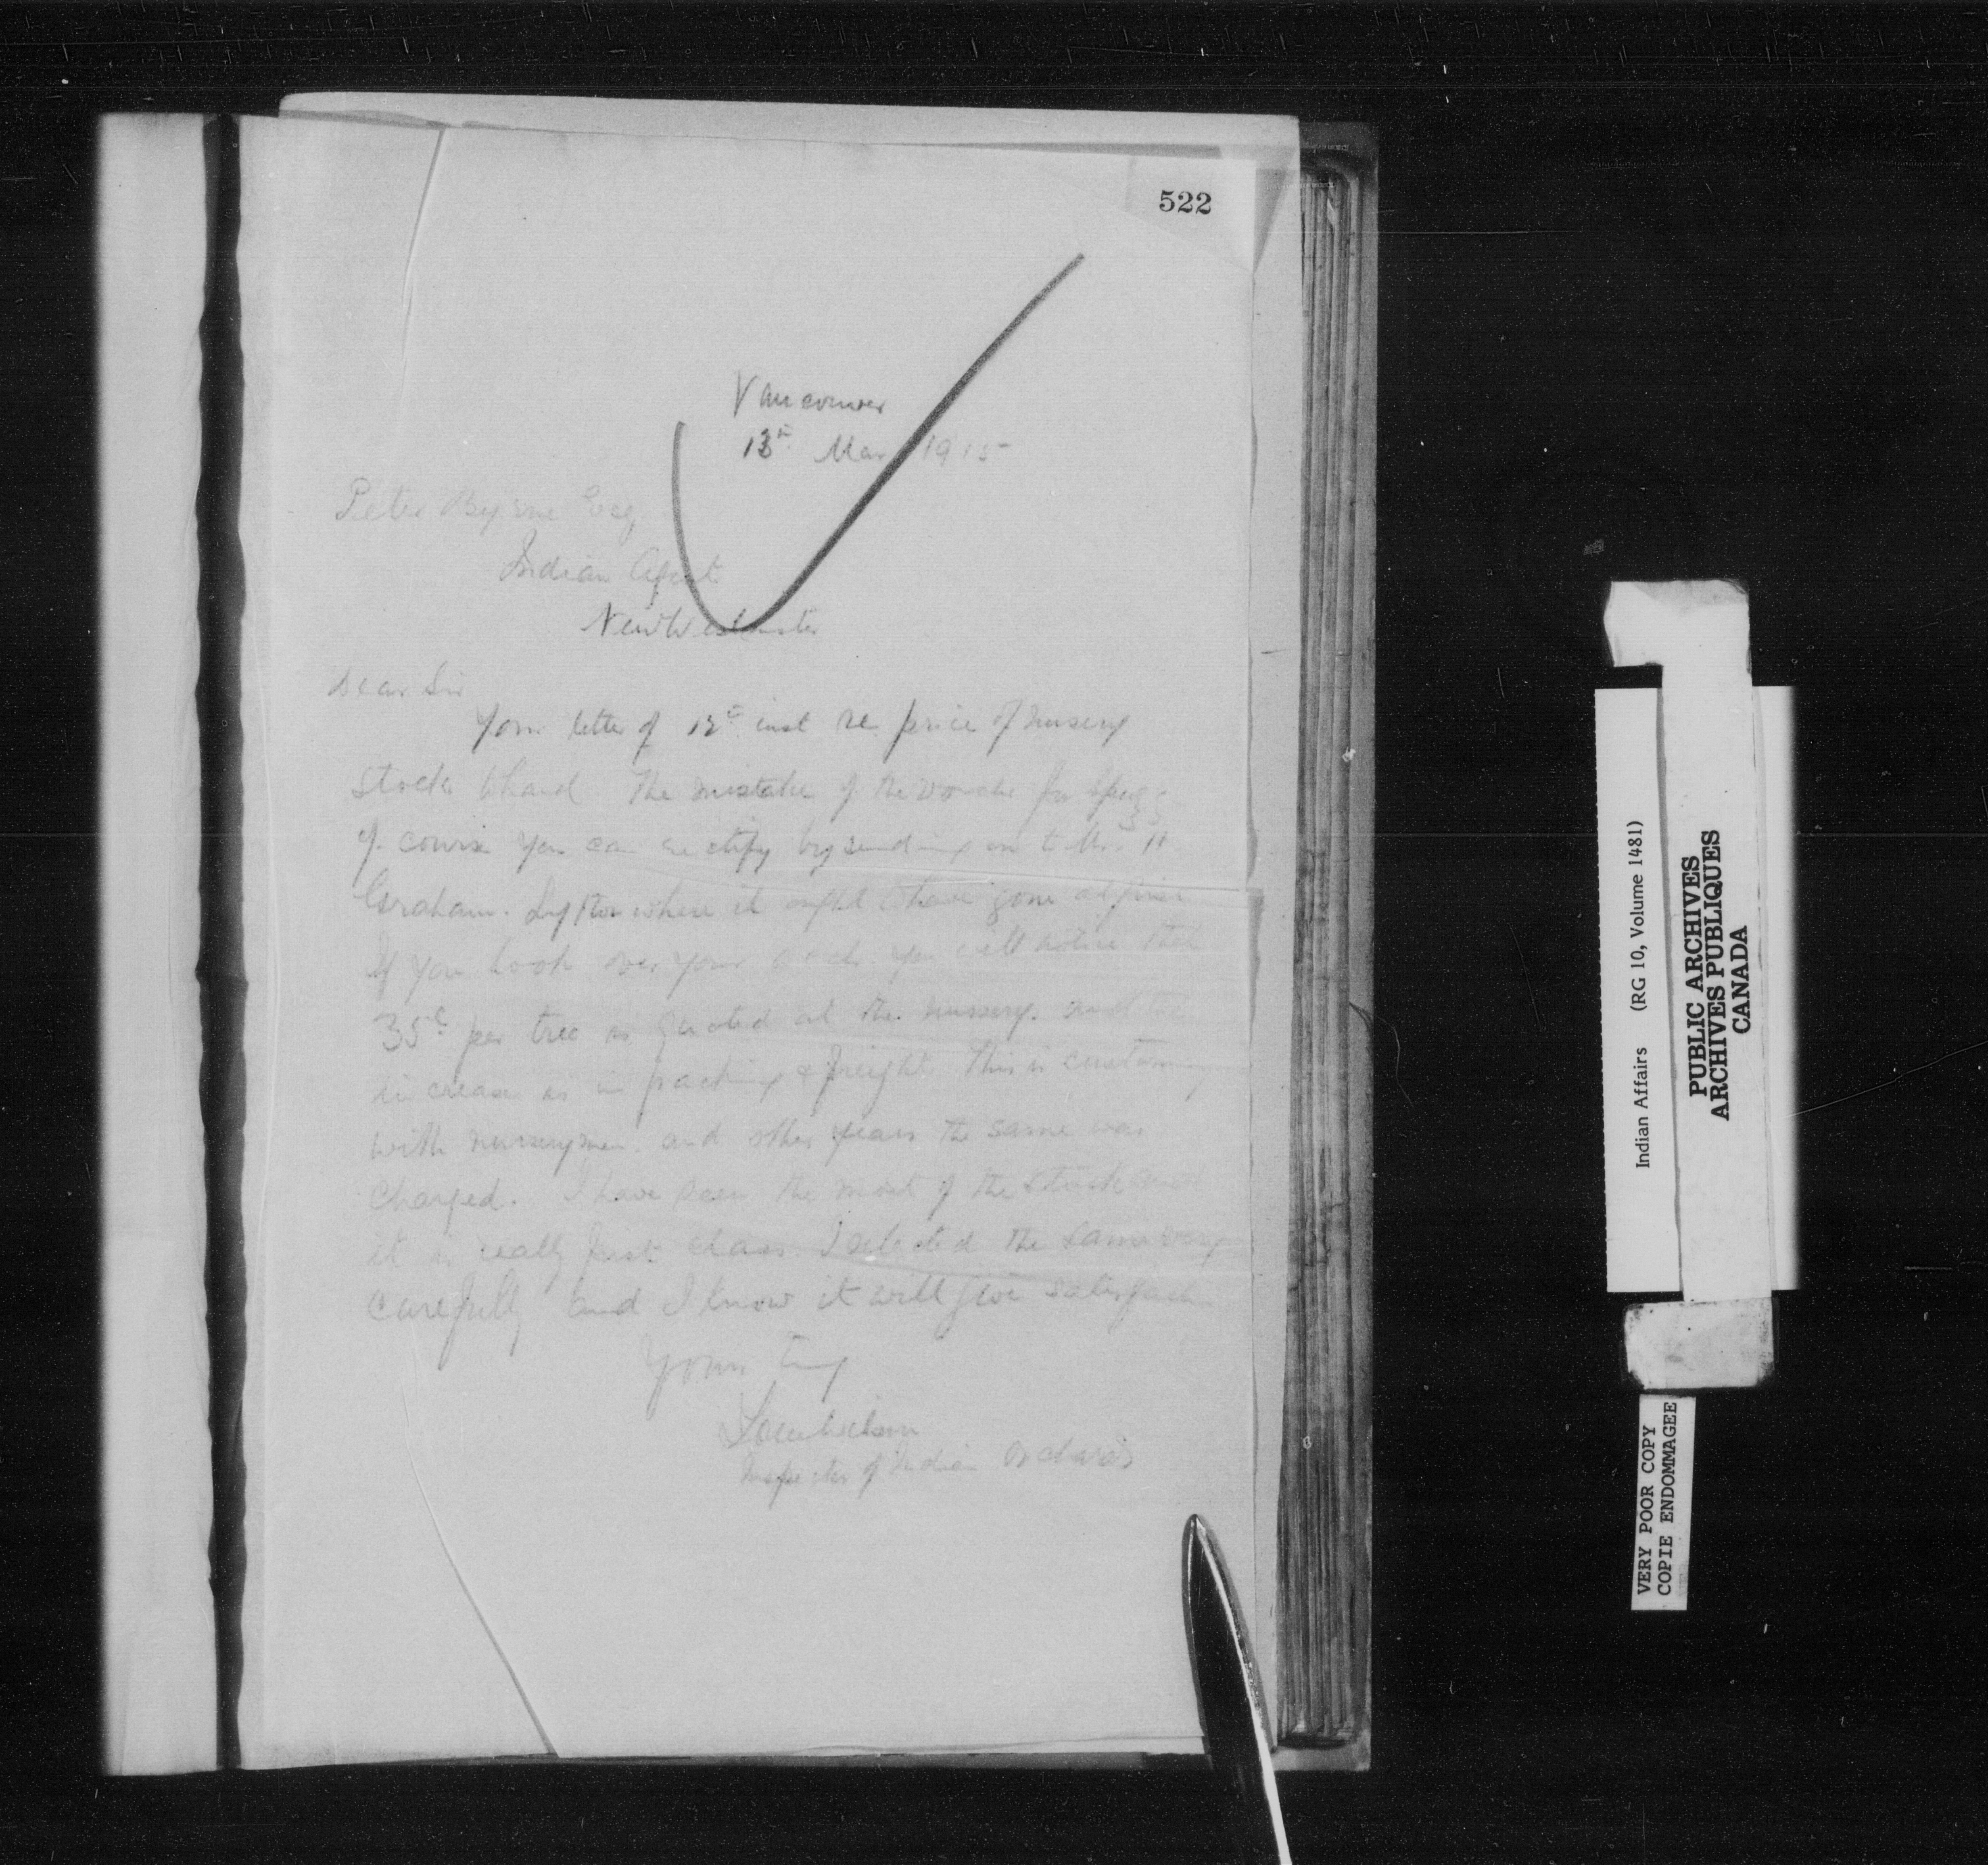 522
Vancouver
13th Mar 1915
Peter Byrne Esq.
Indian Agent
New Westminster
Dear Sir
Your letter of 12th inst re price of nursery
stock to hand The mistake of the voucher for
of course you can rectify by sending on to Mr. H
Graham. Lytton where it ought to have gone at first
If you look over your you will notice that
35c per tree is quoted at the nursery. and the
increase is in packing & freight. This is customary
with nurserymen. and other years the same was
charged. I have seen the most of the stock and
it is really first class. I selected the same very
carefully and I know it will give
Yours
Inspector of Indian Orchards
Indian Affairs (RG 10, Volume 1481)
PUBLIC ARCHIVES
ARCHIVES PUBLIQUES
CANADA
VERY POOR COPY
COPIE ENDOMMAGEE